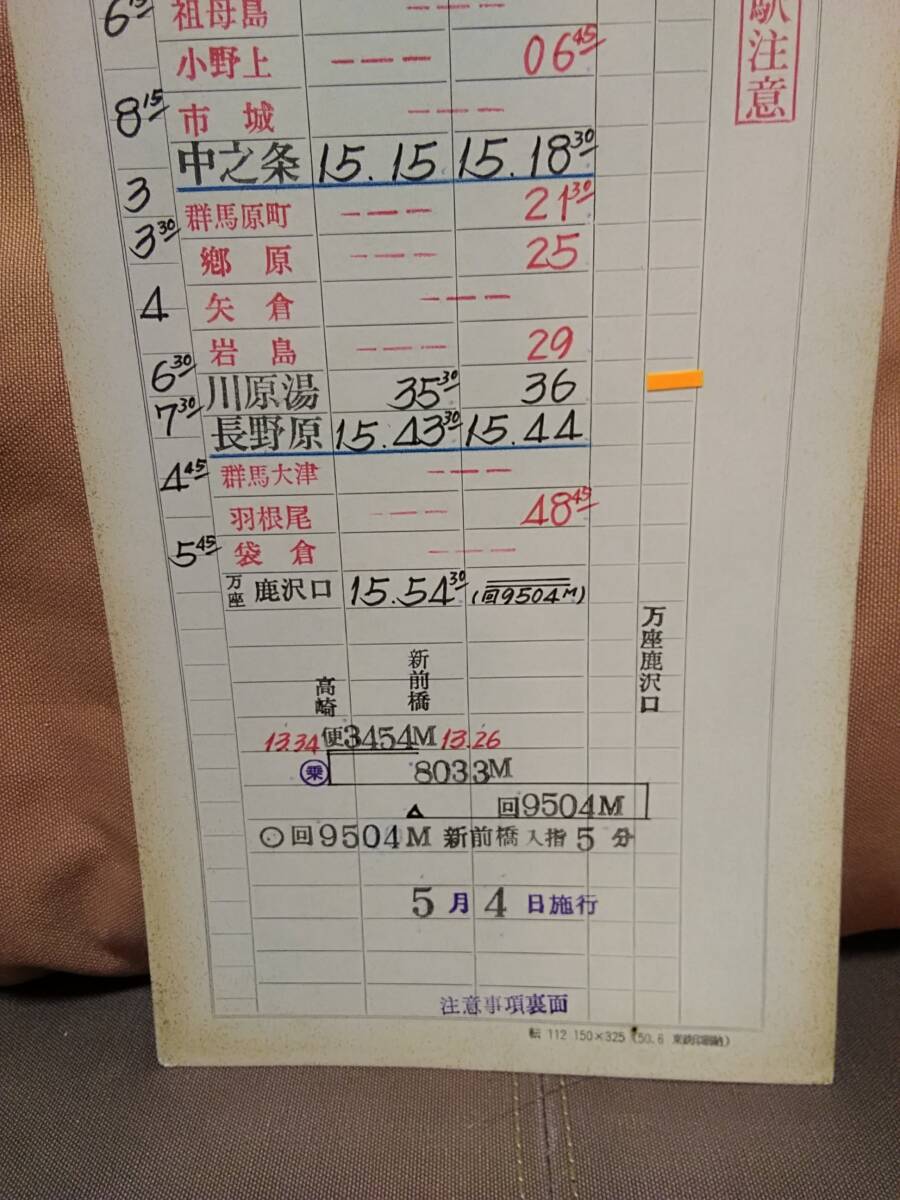 6 15 祖母島 --- ---
小野上 --- 06 45
8 15 市城 ---
中之条 15.15 15.18 30
3 群馬原町 --- 21 30
3 30 郷原 --- 25
4 矢倉 ---
岩島 --- 29
6 30 川原湯 35 30 36
7 30 長野原 15.43 30 15.44
4 45 群馬大津 ---
羽根尾 --- 48 45
5 45 袋倉 ---
万座鹿沢口 15.54 30 (回9504M)
駅注意
万座鹿沢口
新前橋
高崎
13.34 便3454M 13.26
乗 8033M
△ 回9504M
○回9504M 新前橋入指5分
5月4日施行
注意事項裏面
転 112 150×325 (50.6